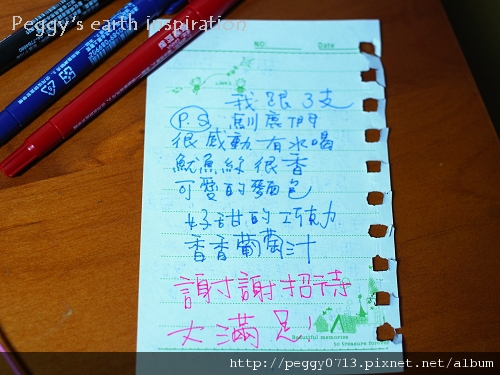 Peggy's earth inspiration
NO:
Date
我跟3支
P.S
很感動有水喝
魷魚絲很香
可愛的麵包
好甜的巧克力
香香葡萄汁
謝謝招待
大滿足!
Beautiful memories
to treasure forever
http://peggy0713.pixnet.net/album